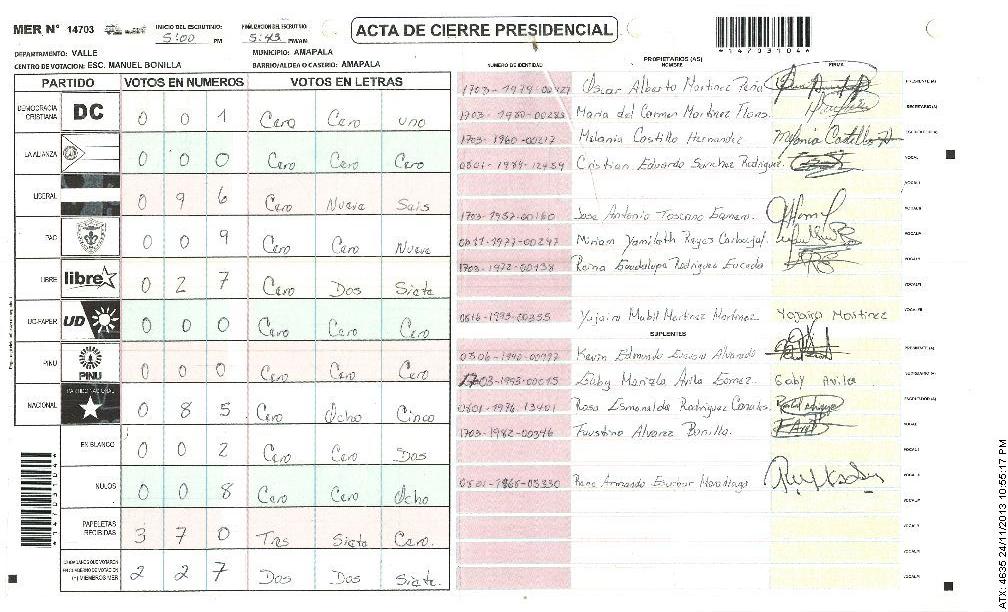 MER N° 14703
INICIO DEL ESCRUTINIO: 5:00 PM
FINALIZACION DEL ESCRUTINIO: 5:43 PM/AM
ACTA DE CIERRE PRESIDENCIAL
*14703104*
DEPARTAMENTO: VALLE
MUNICIPIO: AMAPALA
CENTRO DE VOTACION: ESC. MANUEL BONILLA
BARRIO/ALDEA O CASERIO: AMAPALA
PARTIDO VOTOS EN NUMEROS VOTOS EN LETRAS
DEMOCRACIA CRISTIANA DC 0 0 1 Cero Cero uno
LA ALIANZA 0 0 0 Cero Cero Cero
LIBERAL 0 9 6 Cero Nueve Seis
PAC 0 0 9 Cero Cero Nueve
LIBRE libre 0 2 7 Cero Dos Siete
UD-FAPER UD 0 0 0 Cero Cero Cero
PINU PINU 0 0 0 Cero Cero Cero
NACIONAL PARTIDO NACIONAL 0 8 5 Cero Ocho Cinco
EN BLANCO 0 0 2 Cero Cero Dos
NULOS 0 0 8 Cero Cero Ocho
PAPELETAS RECIBIDAS 3 7 0 Tres Siete Cero.
CIUDADANOS QUE VOTARON EN CUADERNO DE VOTACION (+) MIEMBROS MER 2 2 7 Dos Dos Siete.
NUMERO DE IDENTIDAD
PROPIETARIOS (AS)
NOMBRE
FIRMA
Oscar Alberto Martinez Peña PRESIDENTE (A)
Maria del Carmen Martinez Flores. SECRETARIO (A)
1703-1960-00217 Melania Castillo Hernandez Melania Castillo H
0801-1989-12459 Cristian Eduardo Sanchez Rodriguez. VOCAL
1703-1957-00160 Jose Antonio Toscano Gamero.
Miriam Yamileth Reyes Carbajal.
1703-1972-00138 Reina Guadalupe Rodriguez Euceda
0816-1993-00355 Yojaira Mabil Martinez Martinez Yojaira Martinez
SUPLENTES
Kevin Edmundo Escobar Alvarado PRESIDENTE (A)
1703-1993-00015 Gaby Mariela Avila Gomez. Gaby Avila
0801-1976-13401 Rosa Esmeralda Rodriguez Canales.
1703-1982-00346 Faustino Alvarez Bonilla.
0801-1968-05330 Rene Armando Escobar
ATX: 4635 24/11/2013 10:55:17 PM